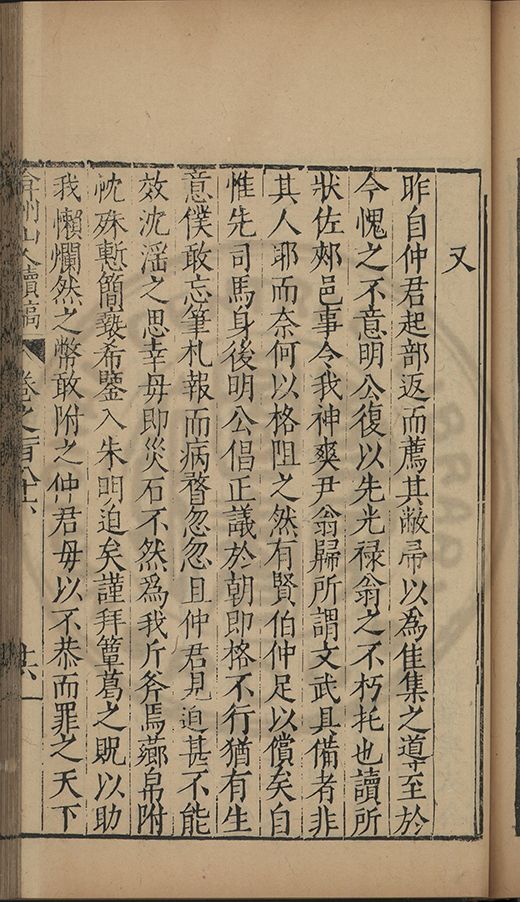 又
昨自仲君起部返而薦其敝帚以為隹集之導至於
今愧之不意明公復以先光禄翁之不朽托也讀所
狀佐郟邑事令我神爽尹翁歸所謂文武具備者非
其人耶而奈何以格阻之然有賢伯仲足以償矣自
惟先司馬身後明公倡正議於朝即格不行猶有生
意僕敢忘筆札報而病瞀忽忽且仲君見迫甚不能
效沈滛之思幸毋即災石不然爲我斤斧焉薌帛附
忱殊慙簡褻希鑒入朱明迫矣謹拜簟葛之貺以助
我懶爛然之幣敢附之仲君毋以不恭而罪之天下
弇州山人續稿 卷之一百八十六 廿六